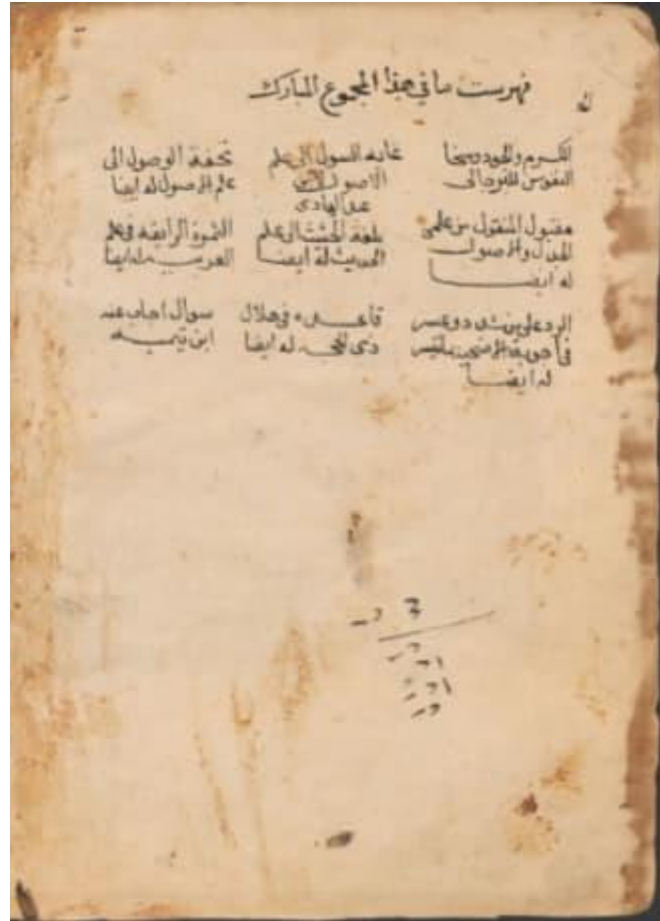 فهرست ما في هذا المجموع المبارك
الكرم والجود وسخا
النفوس للبرجلاني
غاية السول الى علم
الاصول لابن
عبد الهادي
تحفة الوصول الى
علم الاصول له ايضا
مقبول المنقول من علمي
الجدل والاصول
له ايضا
بلغة الحثيث الى علم
الحديث له ايضا
الثمرة الرايقة في علم
العربية له ايضا
الرد على من شدد وعسر
في جواز الاضحية بما تيسر
له ايضا
في هلال
ذي الحجة له ايضا
سوال اجاب عنه
ابن تيمية